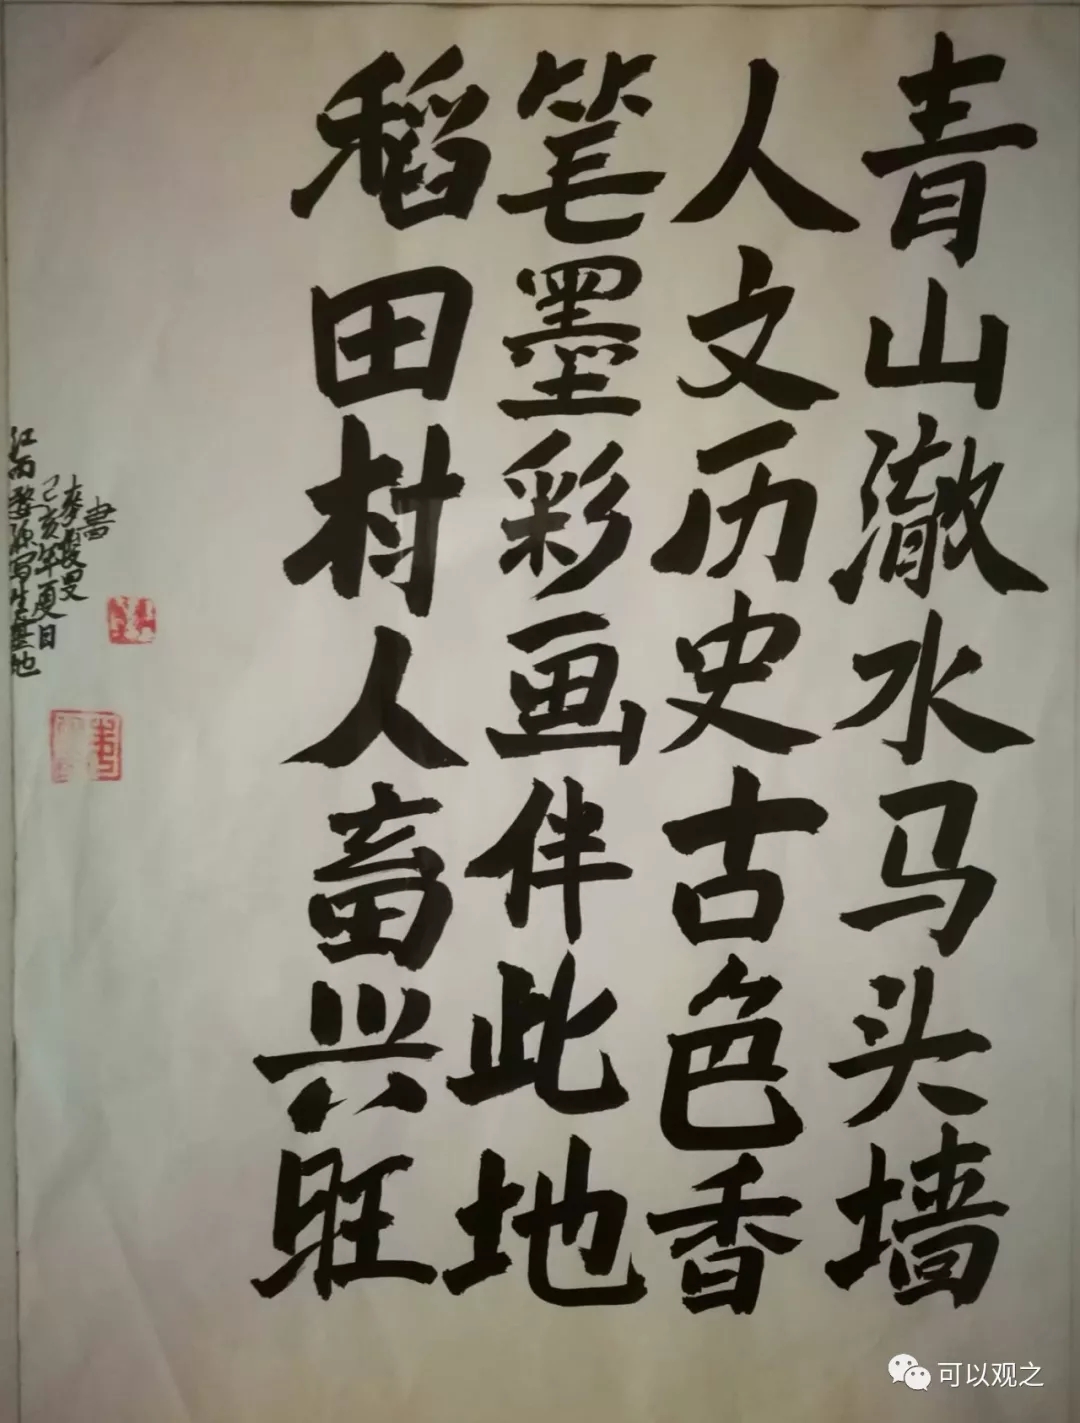 青山澈水马头墙
人文历史古色香
笔墨彩画伴此地
稻田村人畜兴旺
江南婺源写生基地
己亥年夏日
書
可以观之